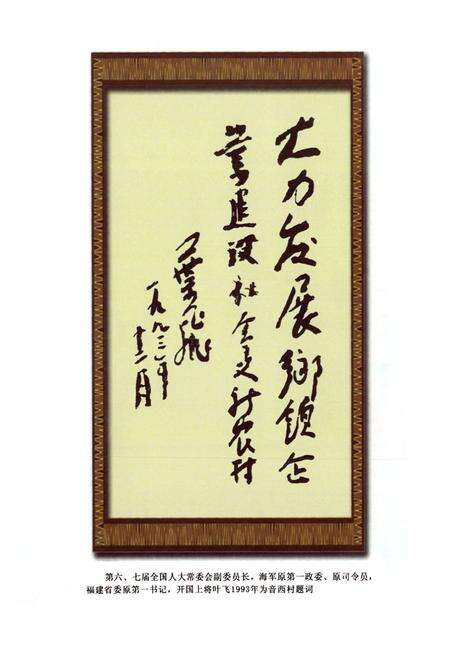 大力发展鄉鎮企
业建设社会主义新农村
叶飞
一九九三年
十二月
第六、七届全国人大常委会副委员长，海军原第一政委、原司令员，
福建省委原第一书记，开国上将叶飞1993年为音西村题词